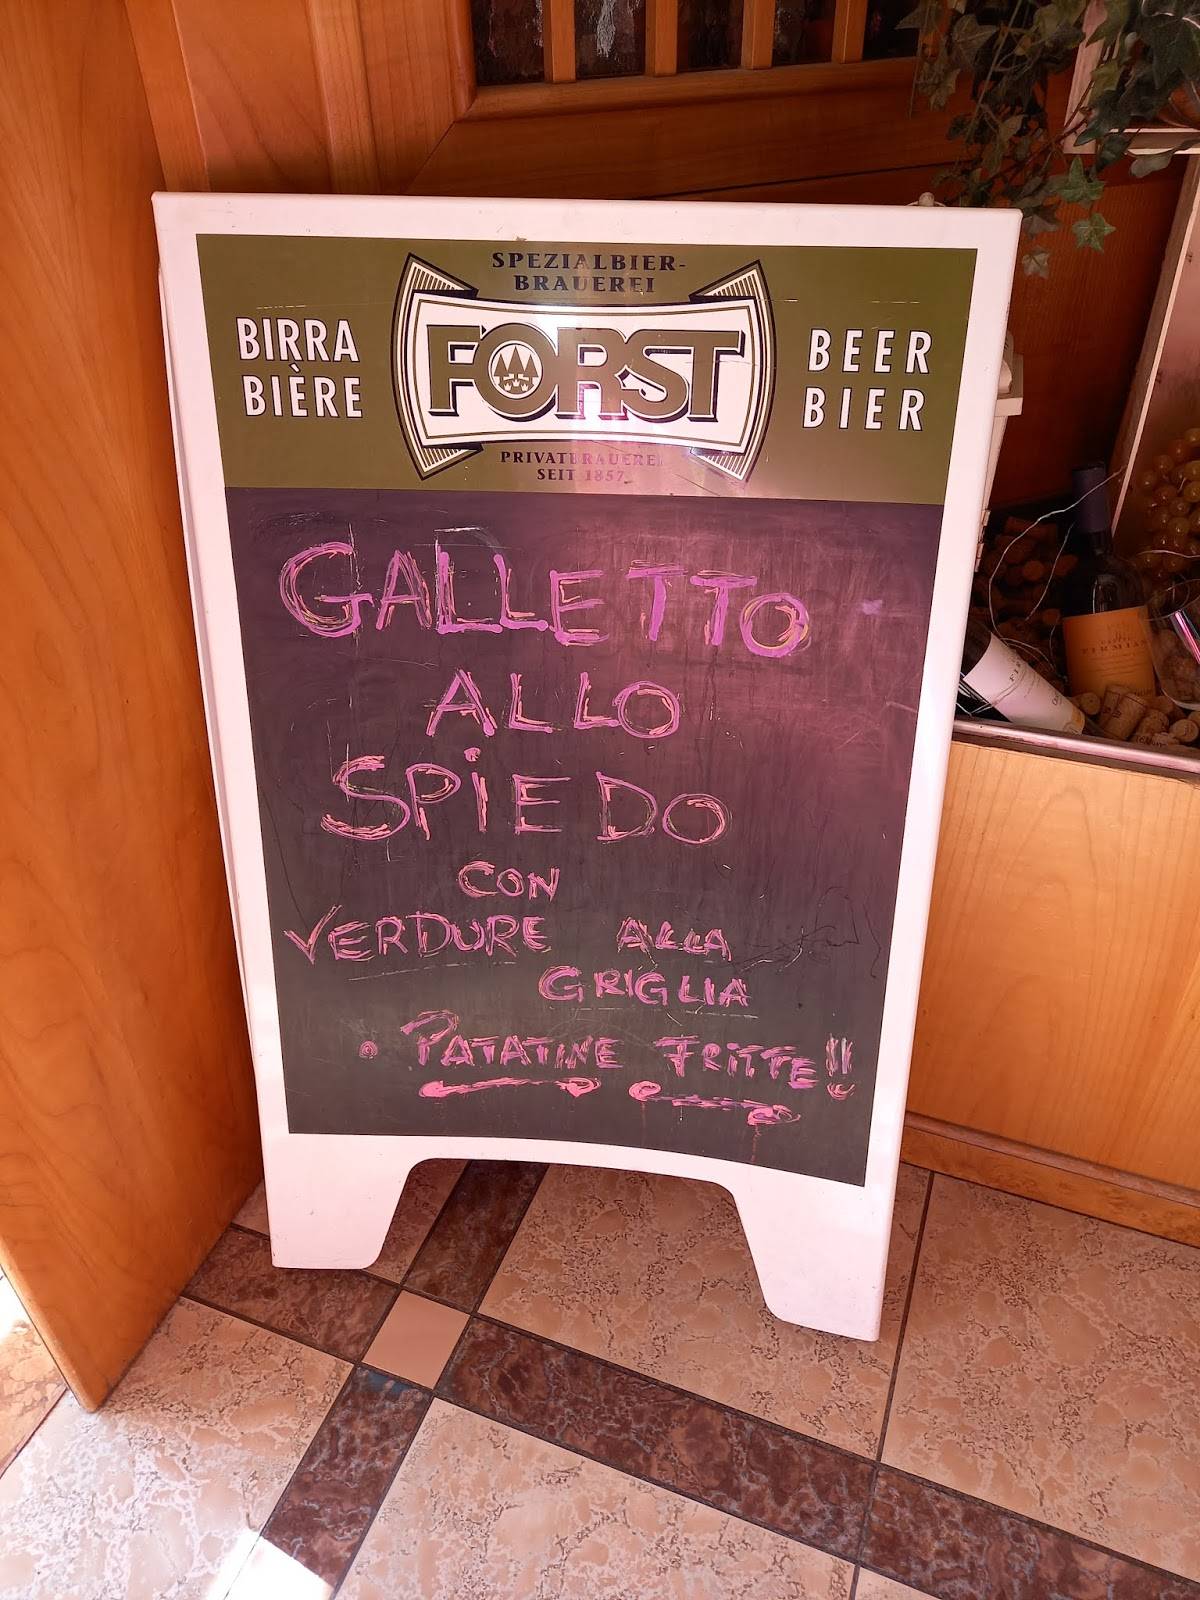 SPEZIALBIER-
BRAUEREI
BIRRA
BIÈRE
FORST
BEER
BIER
PRIVATBRAUEREI
SEIT 1857
GALLETTO
ALLO
SPiEDO
CON
VERDURE ALLA
GRIGLIA
• PATATINE FRITTE!!
FIRMIAN